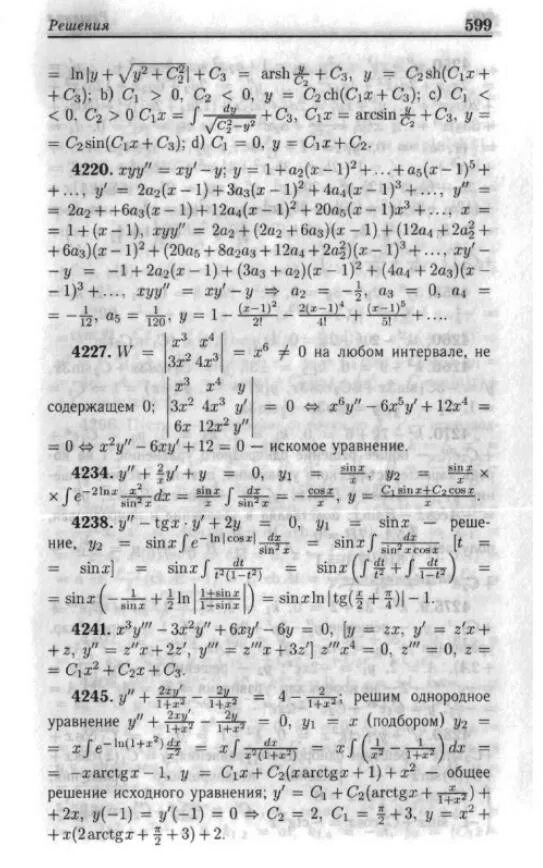 Решения 599
= ln|y + √(y² + C₂²)| + C₃ = arsh y/C₂ + C₃, y = C₂sh(C₁x +
+ C₃); b) C₁ > 0, C₂ < 0, y = C₂ch(C₁x + C₃); c) C₁ <
< 0, C₂ > 0 C₁x = ∫ dy/√(C₂²−y²) + C₃, C₁x = arcsin y/C₂ + C₃, y =
= C₂sin(C₁x + C₃); d) C₁ = 0, y = C₁x + C₂.
4220. xyy″ = xy′ − y; y = 1 + a₂(x − 1)² + ... + a₅(x − 1)⁵ +
+ ..., y′ = 2a₂(x − 1) + 3a₃(x − 1)² + 4a₄(x − 1)³ + ..., y″ =
= 2a₂ + +6a₃(x − 1) + 12a₄(x − 1)² + 20a₅(x − 1)x³ + ..., x =
= 1 + (x − 1), xyy″ = 2a₂ + (2a₂ + 6a₃)(x − 1) + (12a₄ + 2a₂² +
+ 6a₃)(x − 1)² + (20a₅ + 8a₂a₃ + 12a₄ + 2a₂²)(x − 1)³ + ..., xy′ −
− y = −1 + 2a₂(x − 1) + (3a₃ + a₂)(x − 1)² + (4a₄ + 2a₃)(x −
− 1)³ + ..., xyy″ = xy′ − y ⇒ a₂ = −1/2, a₃ = 0, a₄ =
= −1/12, a₅ = 1/120, y = 1 − (x−1)²/2! − 2(x−1)⁴/4! + (x−1)⁵/5! + ....
4227. W = |x³ x⁴; 3x² 4x³| = x⁶ ≠ 0 на любом интервале, не
содержащем 0; |x³ x⁴ y; 3x² 4x³ y′; 6x 12x² y″| = 0 ⇔ x⁶y″ − 6x⁵y′ + 12x⁴ =
= 0 ⇔ x²y″ − 6xy′ + 12 = 0 — искомое уравнение.
4234. y″ + 2/x y′ + y = 0, y₁ = sin x/x, y₂ = sin x/x ×
× ∫ e^(−2 ln x) x²/sin² x dx = sin x/x ∫ dx/sin² x = −cos x/x, y = (C₁ sin x+C₂ cos x)/x.
4238. y″ − tgx · y′ + 2y = 0, y₁ = sinx — реше-
ние, y₂ = sinx ∫ e^(−ln|cos x|) dx/sin² x = sinx ∫ dx/(sin² x cos x) [t =
= sinx] = sinx ∫ dt/(t²(1−t²)) = sinx (∫ dt/t² + ∫ dt/(1−t²)) =
= sinx (−1/sin x + 1/2 ln |(1+sin x)/(1−sin x)|) = sinxln |tg(x/2 + π/4)| − 1.
4241. x³y‴ − 3x²y″ + 6xy′ − 6y = 0, [y = zx, y′ = z′x +
+ z, y″ = z″x + 2z′, y‴ = z‴x + 3z′] z‴x⁴ = 0, z‴ = 0, z =
= C₁x² + C₂x + C₃.
4245. y″ + 2xy′/(1+x²) − 2y/(1+x²) = 4 − 2/(1+x²); решим однородное
уравнение y″ + 2xy′/(1+x²) − 2y/(1+x²) = 0, y₁ = x (подбором) y₂ =
= x ∫ e^(−ln(1+x²)) dx/x² = x ∫ dx/(x²(1+x²)) = x ∫ (1/x² − 1/(1+x²)) dx =
= −xarctgx − 1, y = C₁x + C₂(xarctgx + 1) + x² — общее
решение исходного уравнения; y′ = C₁ + C₂(arctgx + x/(1+x²)) +
+ 2x, y(−1) = y′(−1) = 0 ⇒ C₂ = 2, C₁ = π/2 + 3, y = x² +
+ x(2arctgx + π/2 + 3) + 2.